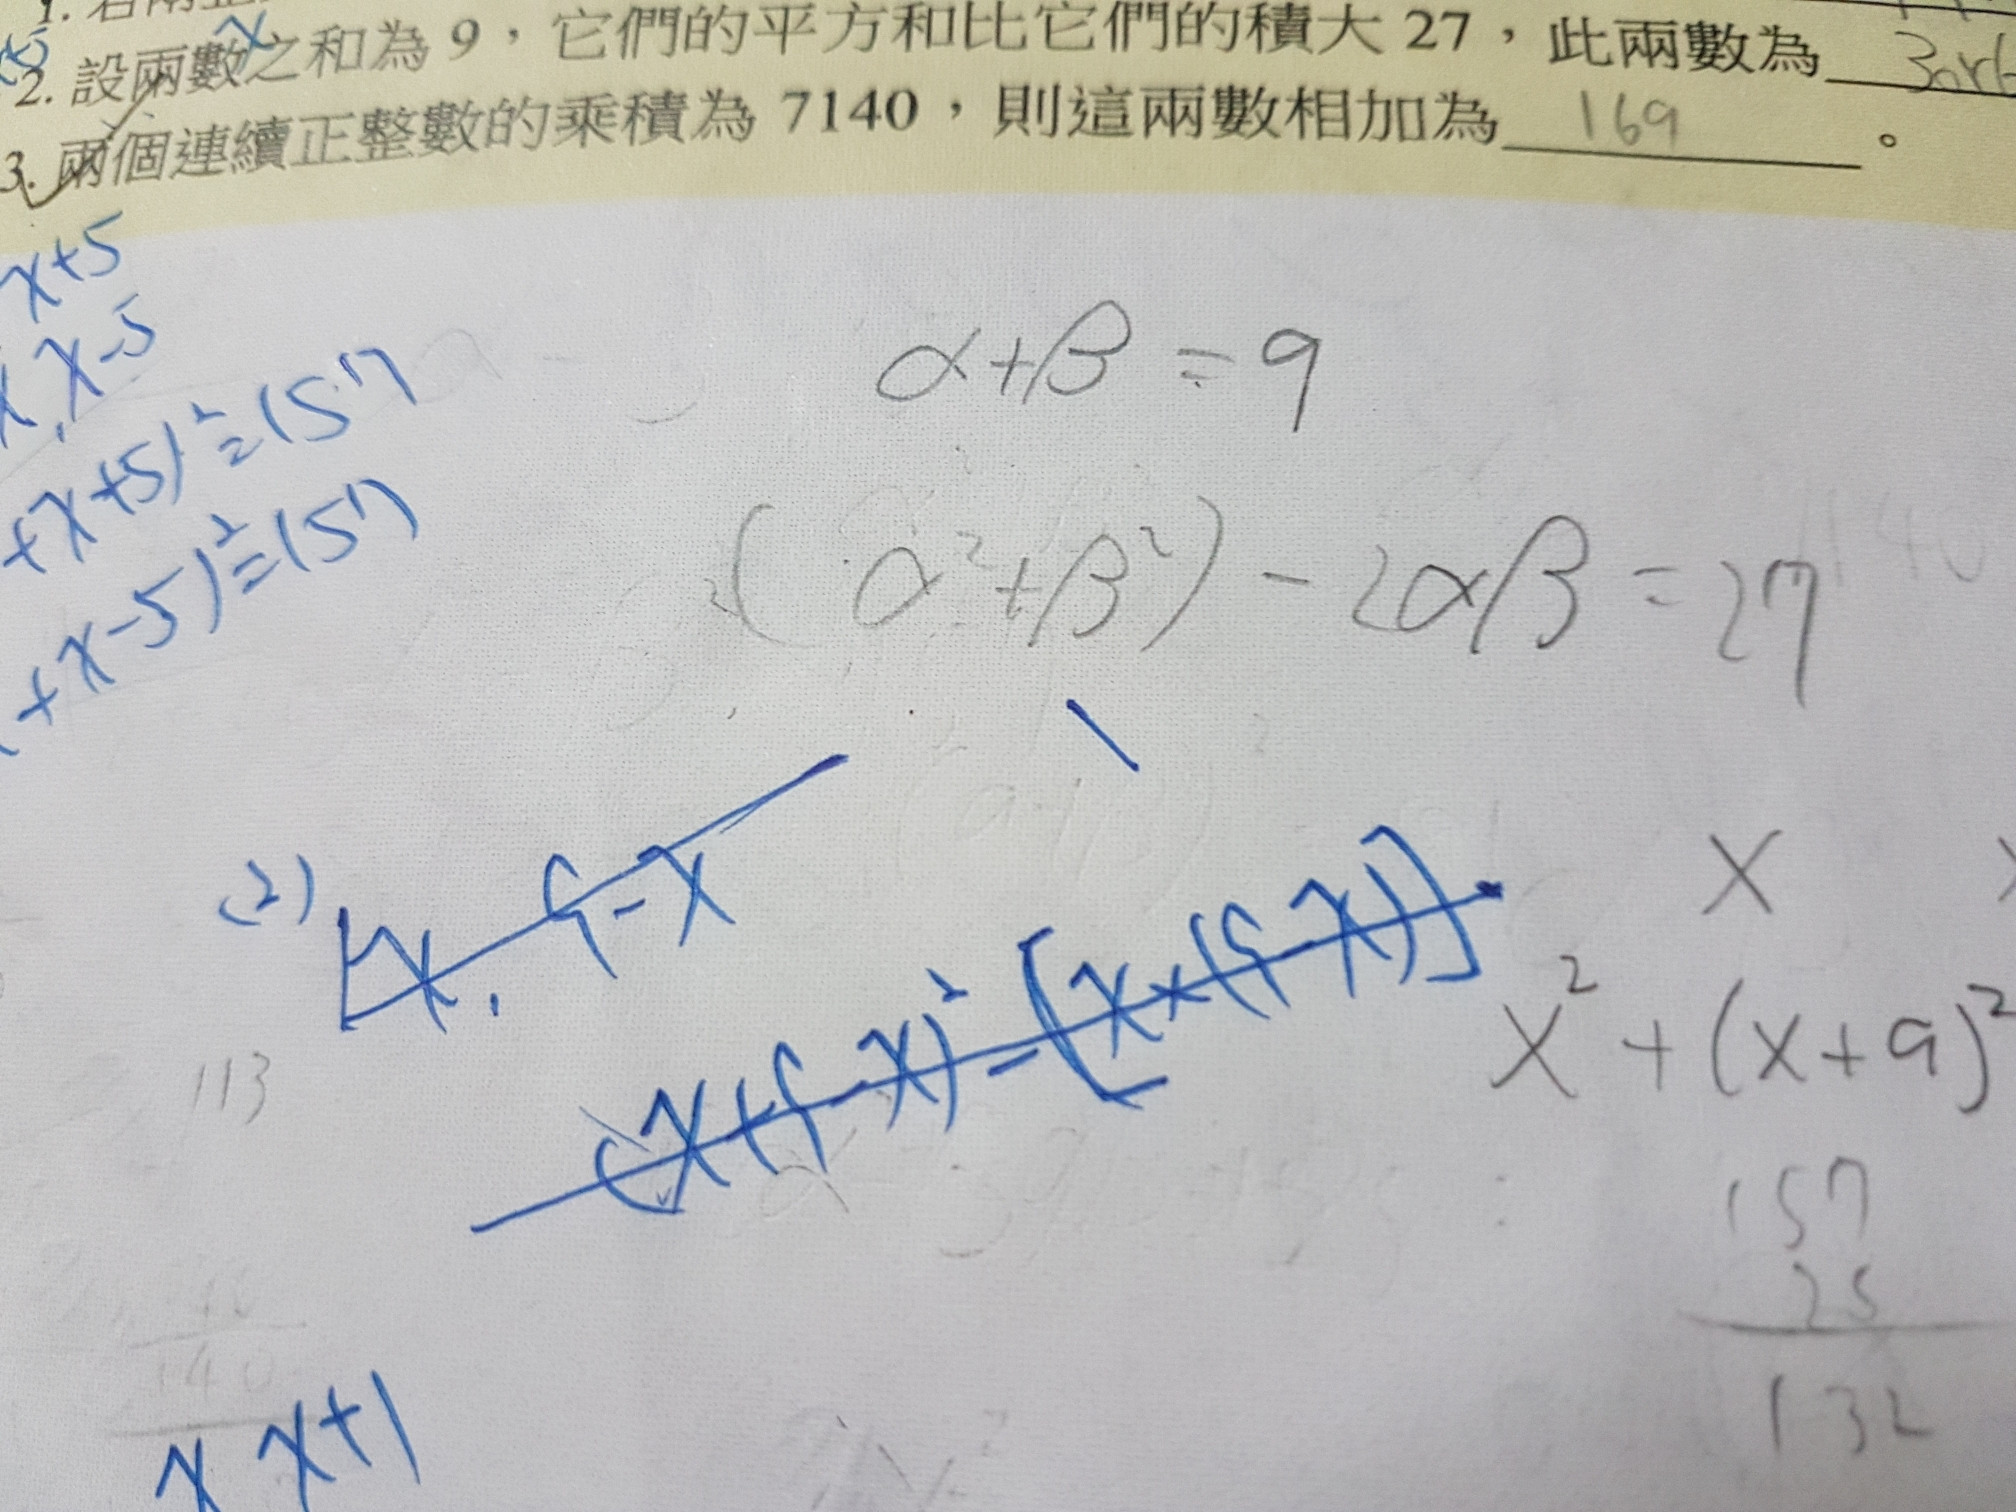 2. 設兩數之和為 9，它們的平方和比它們的積大 27，此兩數為
3. 兩個連續正整數的乘積為 7140，則這兩數相加為 169 。
x+5
x-5
+x+5)²=157
+x-5)²=157
α+β=9
(α²+β²)-2αβ=27
(2)
x, 9-x
(x+9-x)²-[x×(9-x)]
x
x²+(x+9)²
113
157
25
132
140
x x+1